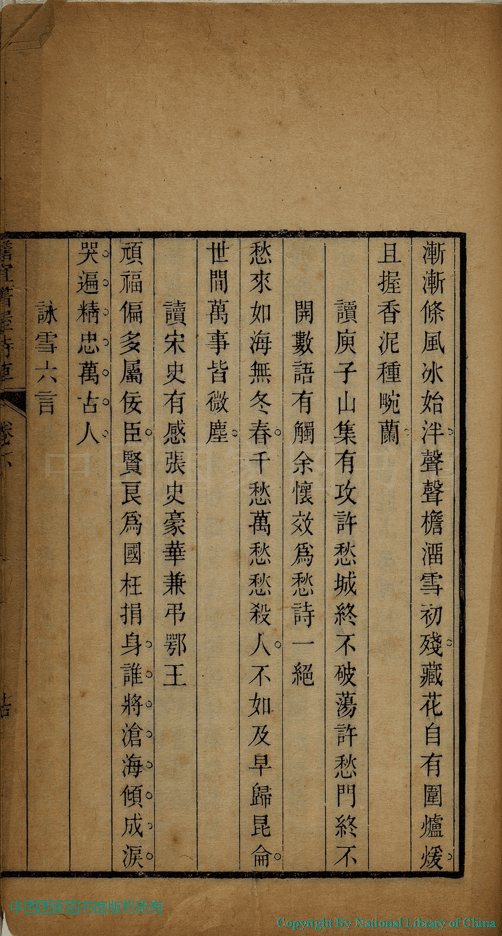 漸漸條風冰始泮聲聲檐溜雪初殘藏花自有圍爐煖
且握香泥種畹蘭
讀庾子山集有攻許愁城終不破蕩許愁門終不
開數語有觸余懷效為愁詩一絕
愁來如海無冬春千愁萬愁愁殺人不如及早歸昆侖
世間萬事皆微塵
讀宋史有感張史豪華兼弔鄂王
頑福偏多屬佞臣賢良爲國枉捐身誰將滄海傾成淚
哭遍精忠萬古人
詠雪六言
Copyright By National Library of China